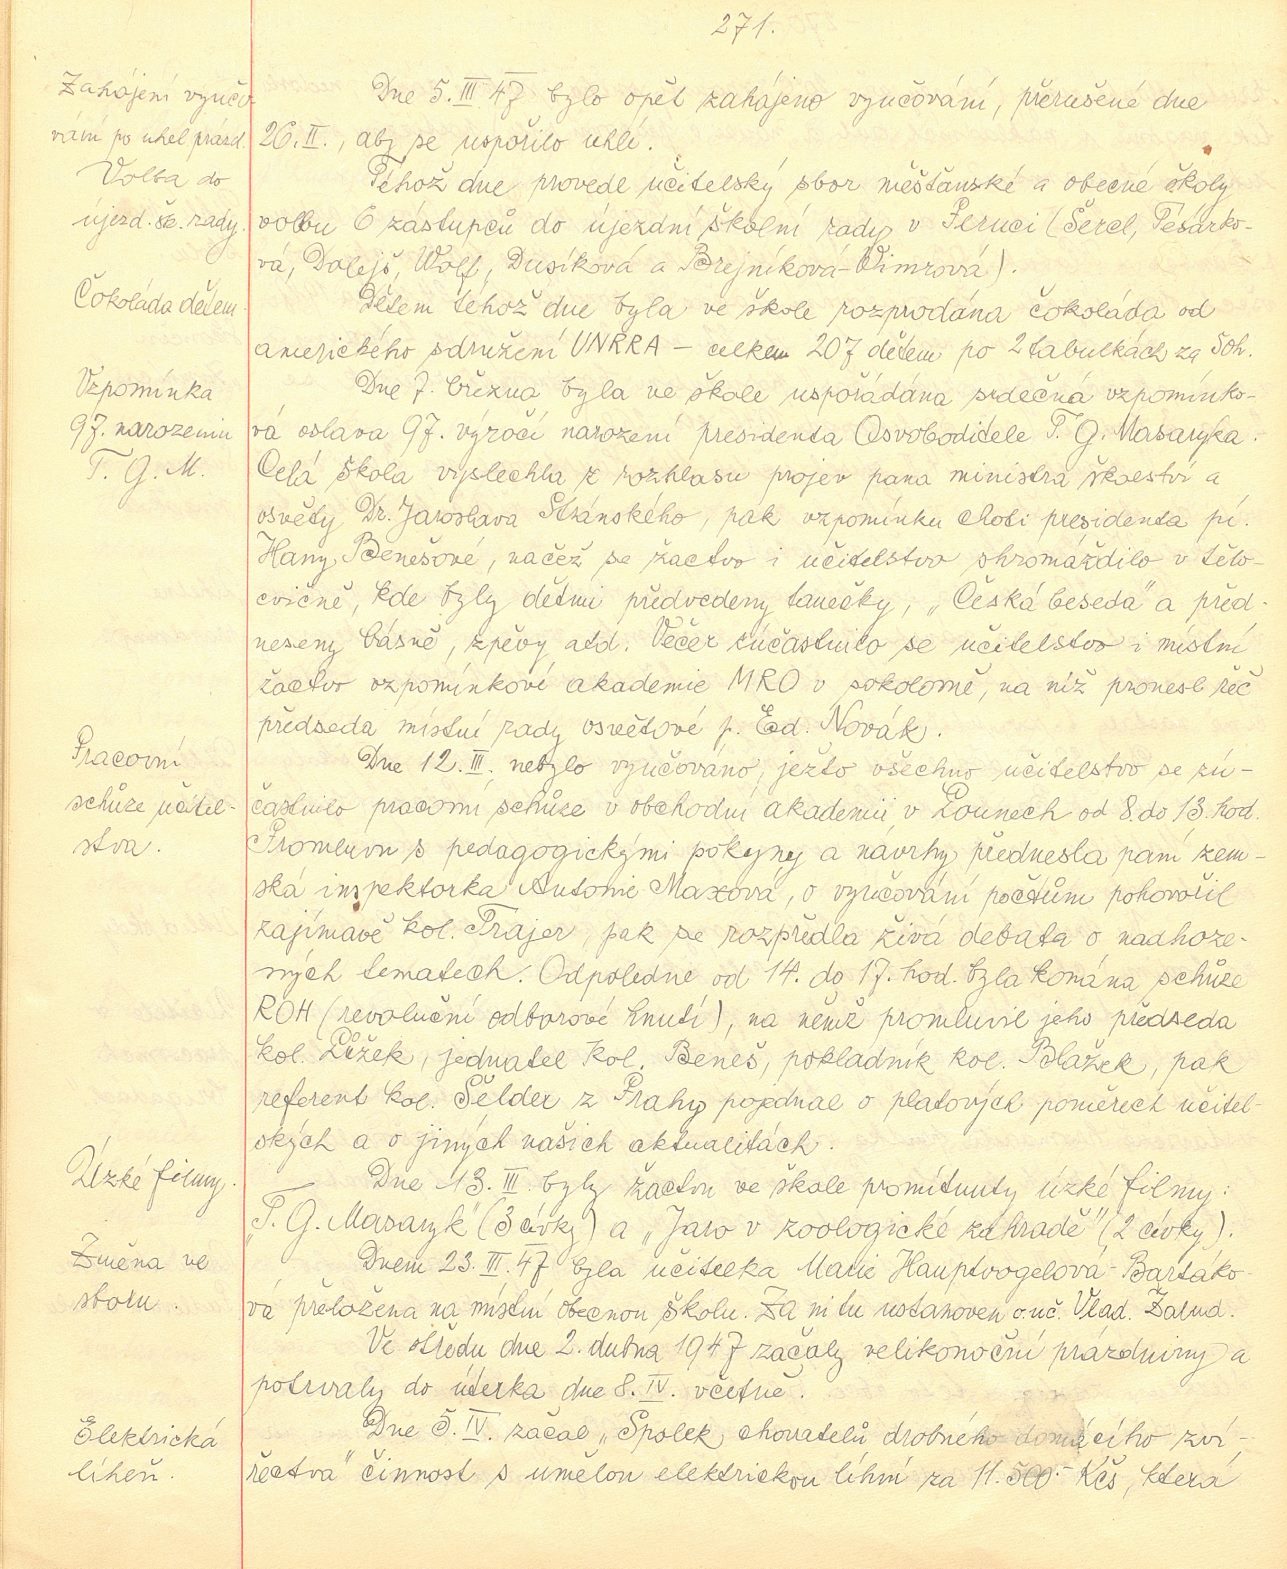 271.
Zahájení vyučo-
vání po uhel. prázd.
Dne 5. III. 47 bylo opět zahájeno vyučování, přerušené dne
26. II., aby se uspořilo uhlí.
Volba do
újezd. šk. rady.
Téhož dne provedl učitelský sbor měšťanské a obecné školy
volbu 6 zástupců do újezdní školní rady v Peruci (Šercl, Tesárko-
vá, Dolejš, Wolf, Dusíková a Brejníková-Wimrová).
Čokoláda dětem.
Dětem téhož dne byla ve škole rozprodána čokoláda od
amerického sdružení UNRRA – celkem 207 dětem po 2 tabulkách za
Vzpomínka
97. narozenin
T. G. M.
Dne 7. března byla ve škole uspořádána srdečná vzpomínko-
vá oslava 97. výročí narození presidenta Osvoboditele T. G. Masaryka.
Celá škola vyslechla z rozhlasu projev pana ministra školství a
osvěty Dr. Jaroslava Stránského, pak vzpomínku choti presidenta pí.
Hany Benešové, načež se žactvo i učitelstvo shromáždilo v tělo-
cvičně, kde byly dětmi předvedeny tanečky, „Česká beseda" a před-
neseny básně, zpěvy atd. Večer zúčastnilo se učitelstvo i místní
žactvo vzpomínkové akademie MRO v sokolovně, na níž pronesl řeč
předseda místní rady osvětové p. Ed. Novák.
Pracovní
schůze učitel-
stva.
Dne 12. III. nebylo vyučováno, ježto všechno učitelstvo se zú-
častnilo pracovní schůze v obchodní akademii v Lounech od 8 do 13. hod.
Promluvu s pedagogickými pokyny a návrhy přednesla paní zem-
ská inspektorka Antonie Maxová, o vyučování počtům pohovořil
zajímavě kol. Trajer, pak se rozpředla živá debata o nadhoze-
ných tematech. Odpoledne od 14. do 17. hod. byla konána schůze
ROH (revoluční odborové hnutí), na němž promluvil jeho předseda
kol. Ležek, jednatel kol. Beneš, pokladník kol. Blažek, pak
referent kol. Šelder z Prahy pojednal o platových poměrech učitel-
ských a o jiných našich aktualitách.
Úzké filmy.
Dne 13. III. byly žactvu ve škole promítnuty úzké filmy:
„T. G. Masaryk" (3 cívky) a „Jaro v zoologické zahradě" (2 cívky).
Změna ve
sboru.
Dnem 23. III. 47 byla učitelka Marie Hauptvogelová-Bartáko-
vá přeložena na místní obecnou školu. Za ni tu ustanoven o. uč. Vlad. Žalud.
Ve středu dne 2. dubna 1947 začaly velikonoční prázdniny a
potrvaly do úterka dne 8. IV. včetně.
Elektrická
líheň.
Dne 5. IV. začal „Spolek chovatelů drobného domácího zví-
řectva" činnost s umělou elektrickou líhní za 11.500.- Kčs, která